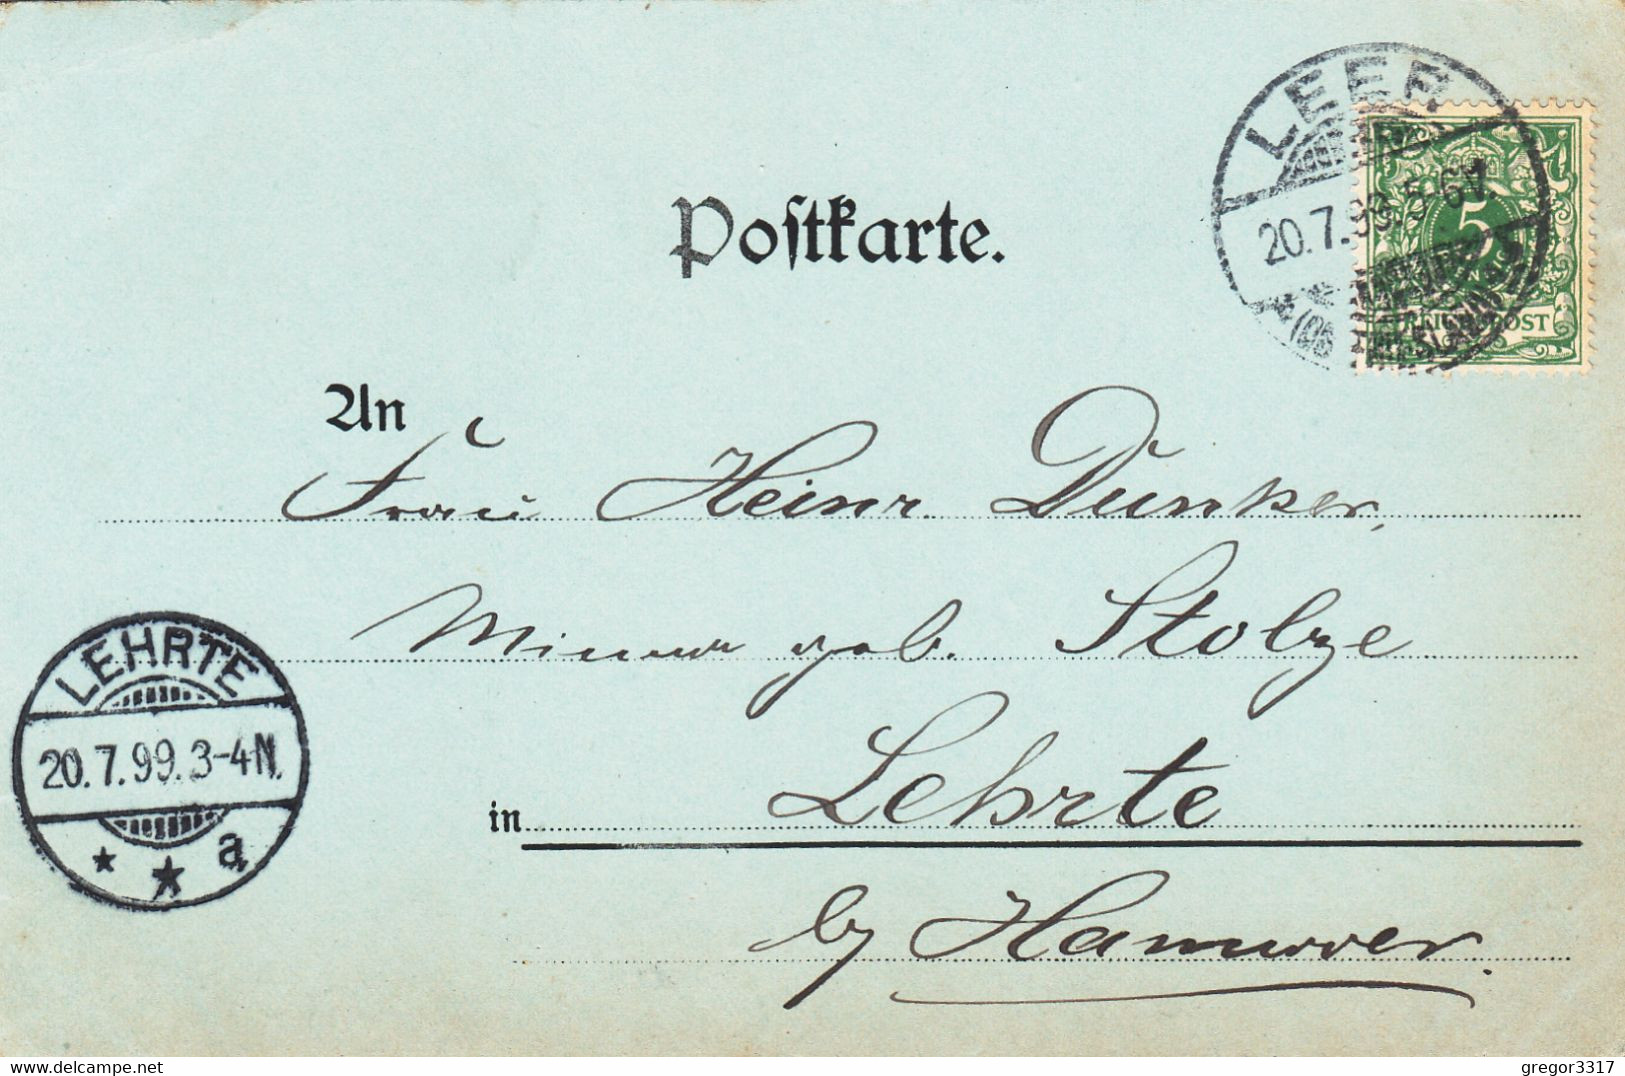 LEER
20.7.99.5-6V.
(OSTFRIESLAND)
5
REICHSPOST
Postkarte.
An
Frau Heinr. Dunker,
geb. Stolze
LEHRTE
20.7.99.3-4N.
* * a
in Lehrte
by Hannover.
www.delcampe.net
gregor3317